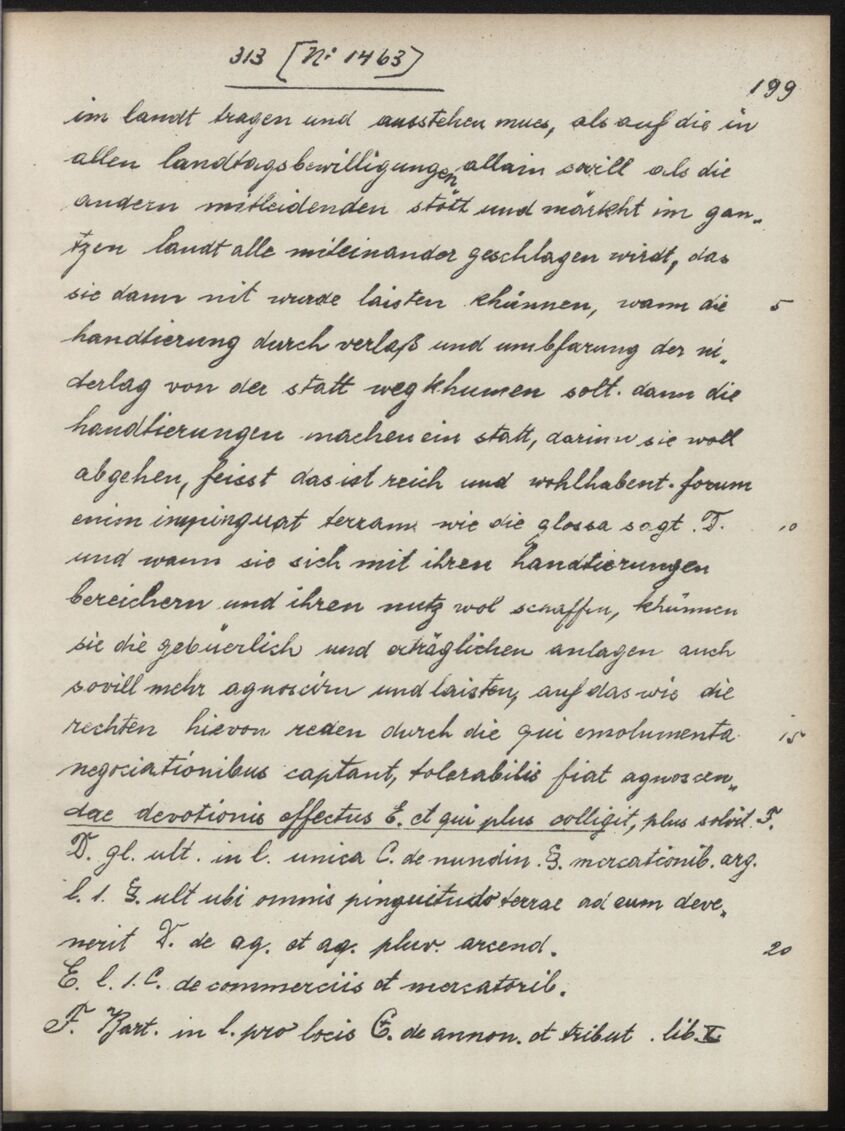 313 [N: 1463]
199
im landt tragen und ausstehen mues, als auf die in
allen landtagsbewilligungen allain sovill als die
andern mitleidenden stött und märkht im gan„
tzen landt alle miteinander geschlagen wirdt, das
sie dann nit wurde laisten khünnen, wann die 5
handtierung durch verlaß und umbfarung der ni„
derlag von der statt wegkhumen solt. dann die
handtierungen machen ein statt, darinn sie woll
abgehen, feisst das ist reich und wohlhabent. forum
enim impinguat terram wie die glossa sagt. D. 10
und wann sie sich mit ihren handtierungen
bereichern und ihren nutz wol schaffen, khünnen
sie die gebüerlich und erträglichen anlagen auch
sovill mehr agnosciren und laisten, auf das wie die
rechten hievon reden durch die qui emolumenta 15
negociationibus captant, tolerabilis fiat agnoscen„
dae devotionis effectus E. et qui plus colligit, plus solvit F.
D. gl. ult. in l. unica C. de nundin. §. mercationib. arg.
l. 1. §. ult ubi omnis pinguitudo terrae ad eum deve„
nerit D. de aq. et aq. pluv. arcend. 20
E. l. 1. C. de commerciis et mercatorib.
F. Bart. in l. pro locis C. de annon. et tribut. lib. X